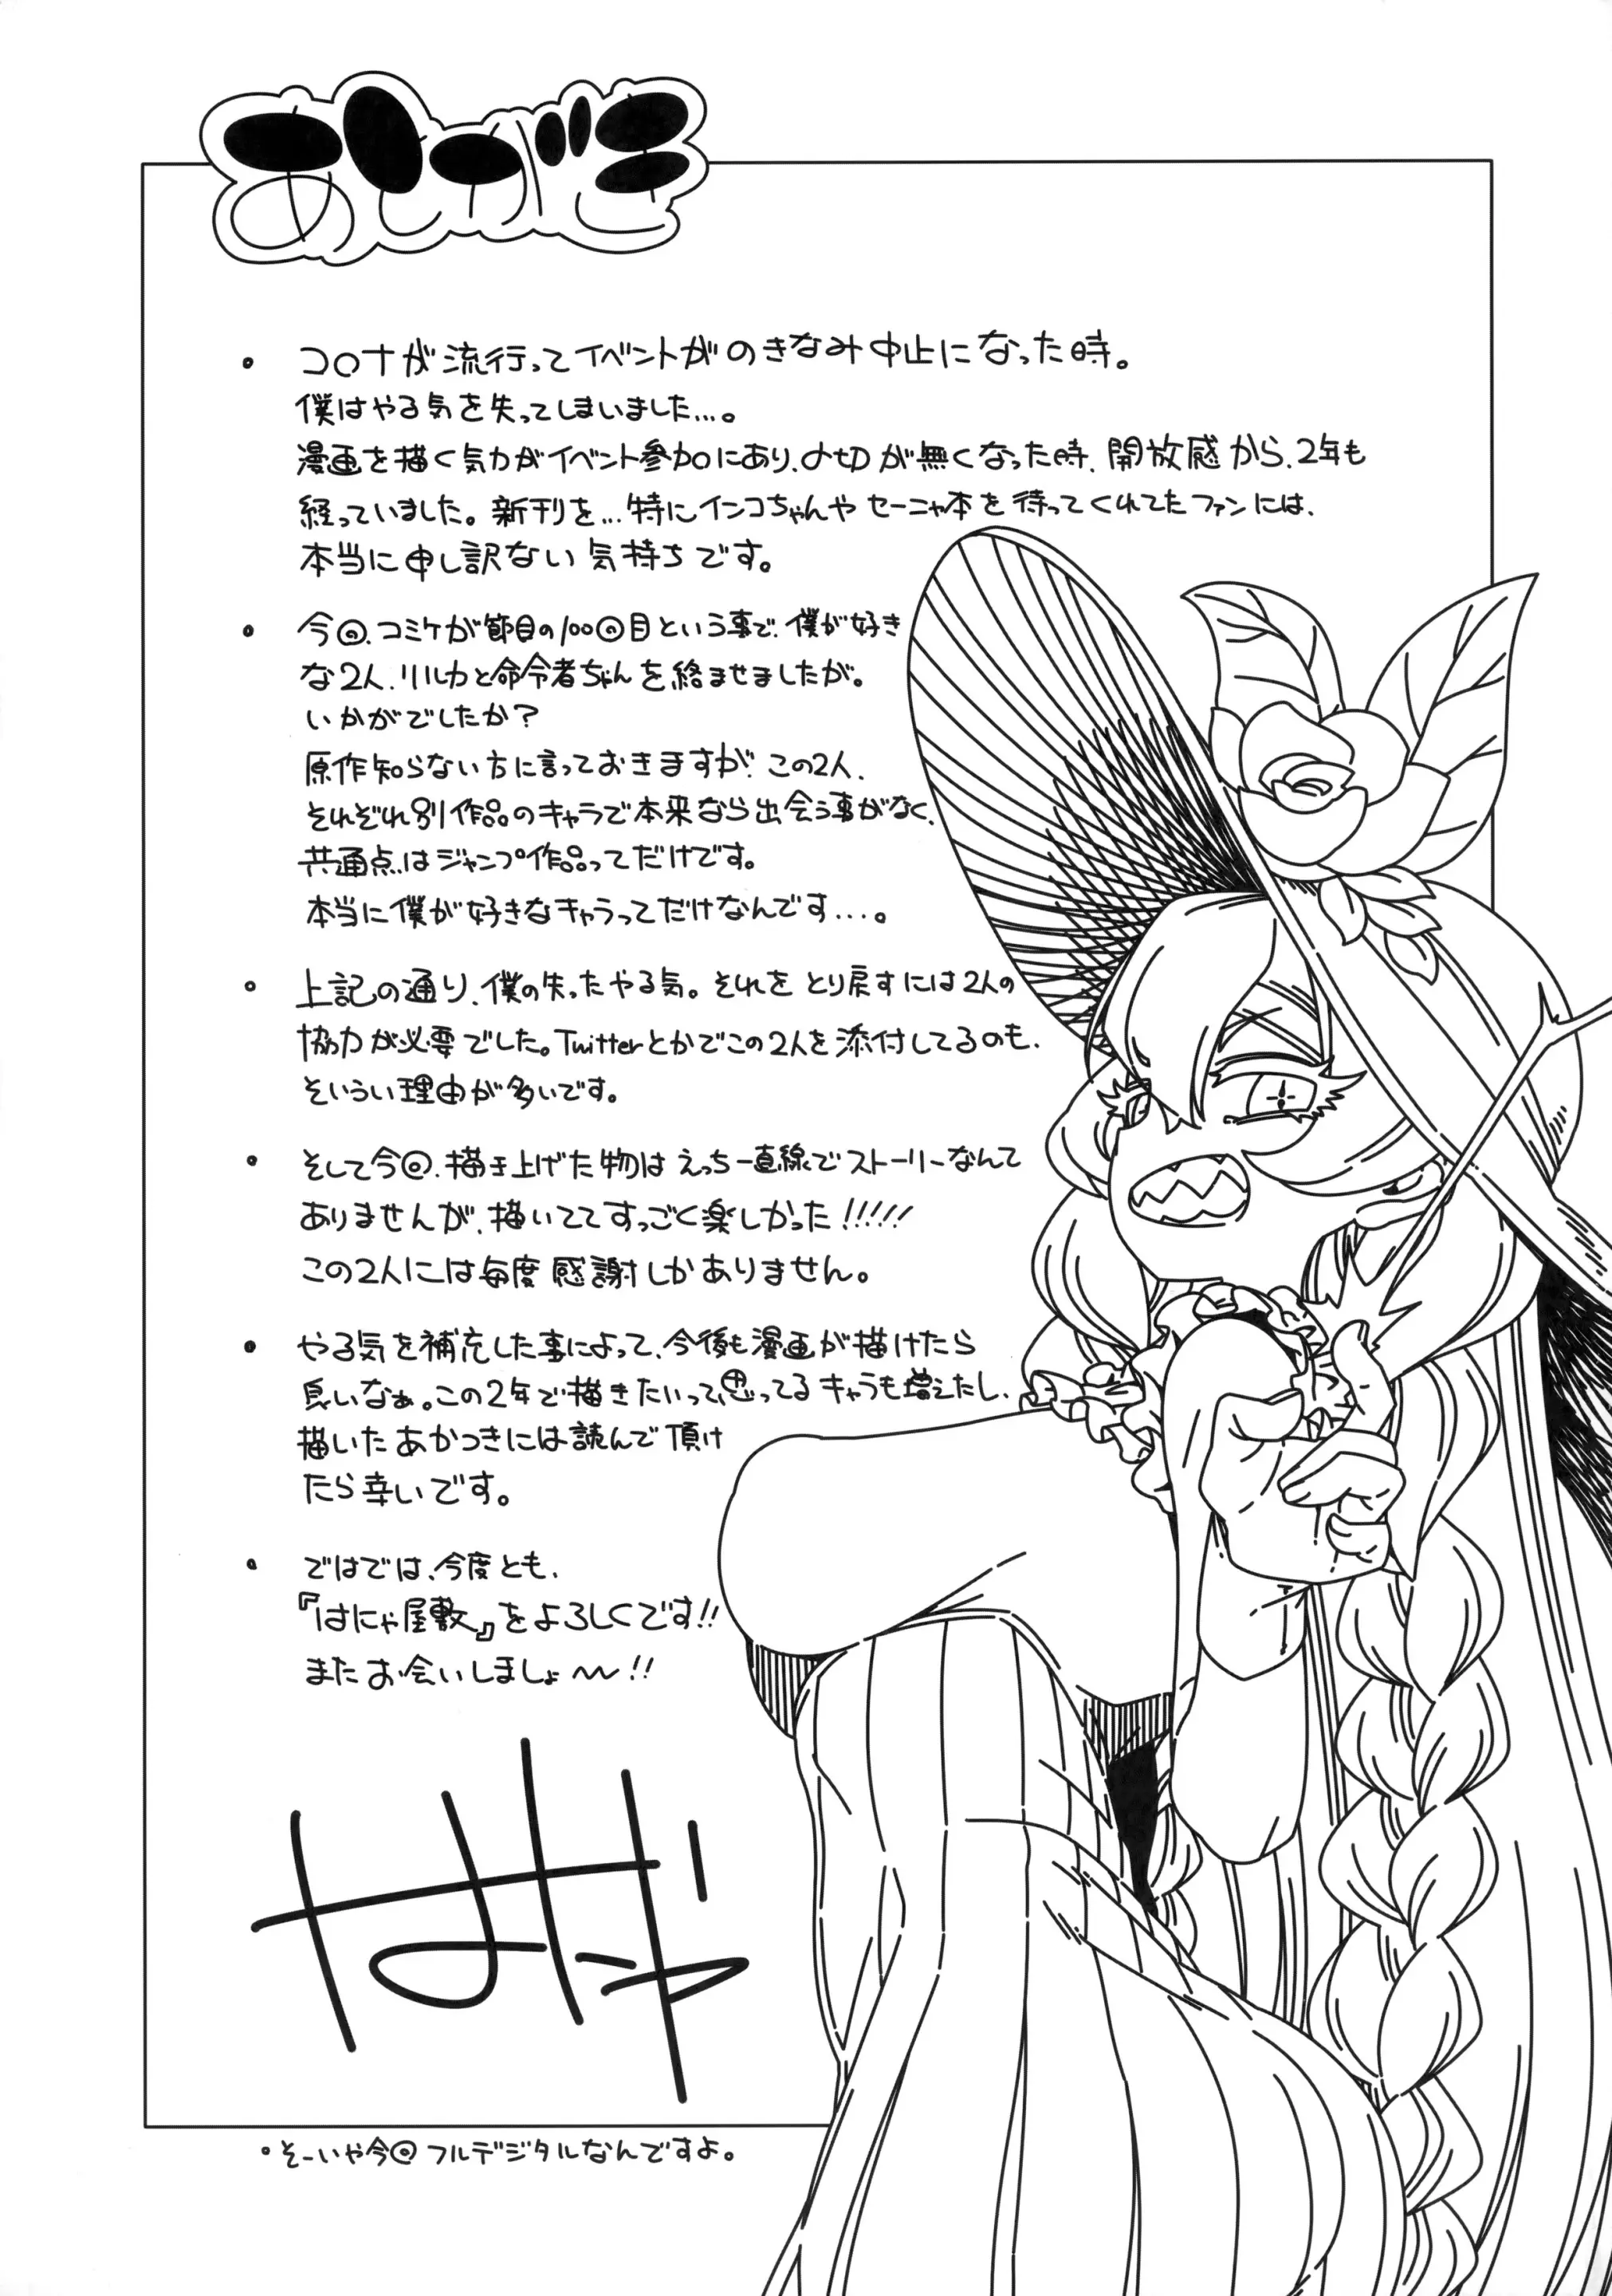 あとがき
・コロナが流行ってイベントがのきなみ中止になった時。
僕はやる気を失ってしまいました…。
漫画を描く気力がイベント参加にあり、〆切が無くなった時、開放感から、2年も
経っていました。新刊を…特にインコちゃんやセーニャ本を待ってくれてたファンには、
本当に申し訳ない気持ちです。
・今回、コミケが節目の100回目という事で、僕が好き
な2人、リルカと命令者ちゃんを絡ませましたが。
いかがでしたか？
原作知らない方に言っておきますが、この2人、
それぞれ別作品のキャラで本来なら出会う事がなく、
共通点はジャンプ作品ってだけです。
本当に僕が好きなキャラってだけなんです…。
・上記の通り、僕の失ったやる気。それをとり戻すには2人の
協力が必要でした。Twitterとかでこの2人を添付してるのも、
そいうい理由が多いです。
・そして今回、描き上げた物はえっち一直線でストーリーなんて
ありませんが、描いててすっごく楽しかった!!!!!
この2人には毎度感謝しかありません。
・やる気を補充した事によって、今後も漫画が描けたら
良いなぁ。この2年で描きたいって思ってるキャラも増えたし、
描いたあかつきには読んで頂け
たら幸いです。
・ではでは、今度とも、
『はにゃ屋敷』をよろしくです!!
またお会いしましょ〜!!
はにゃ
・そーいや今回フルデジタルなんですよ。